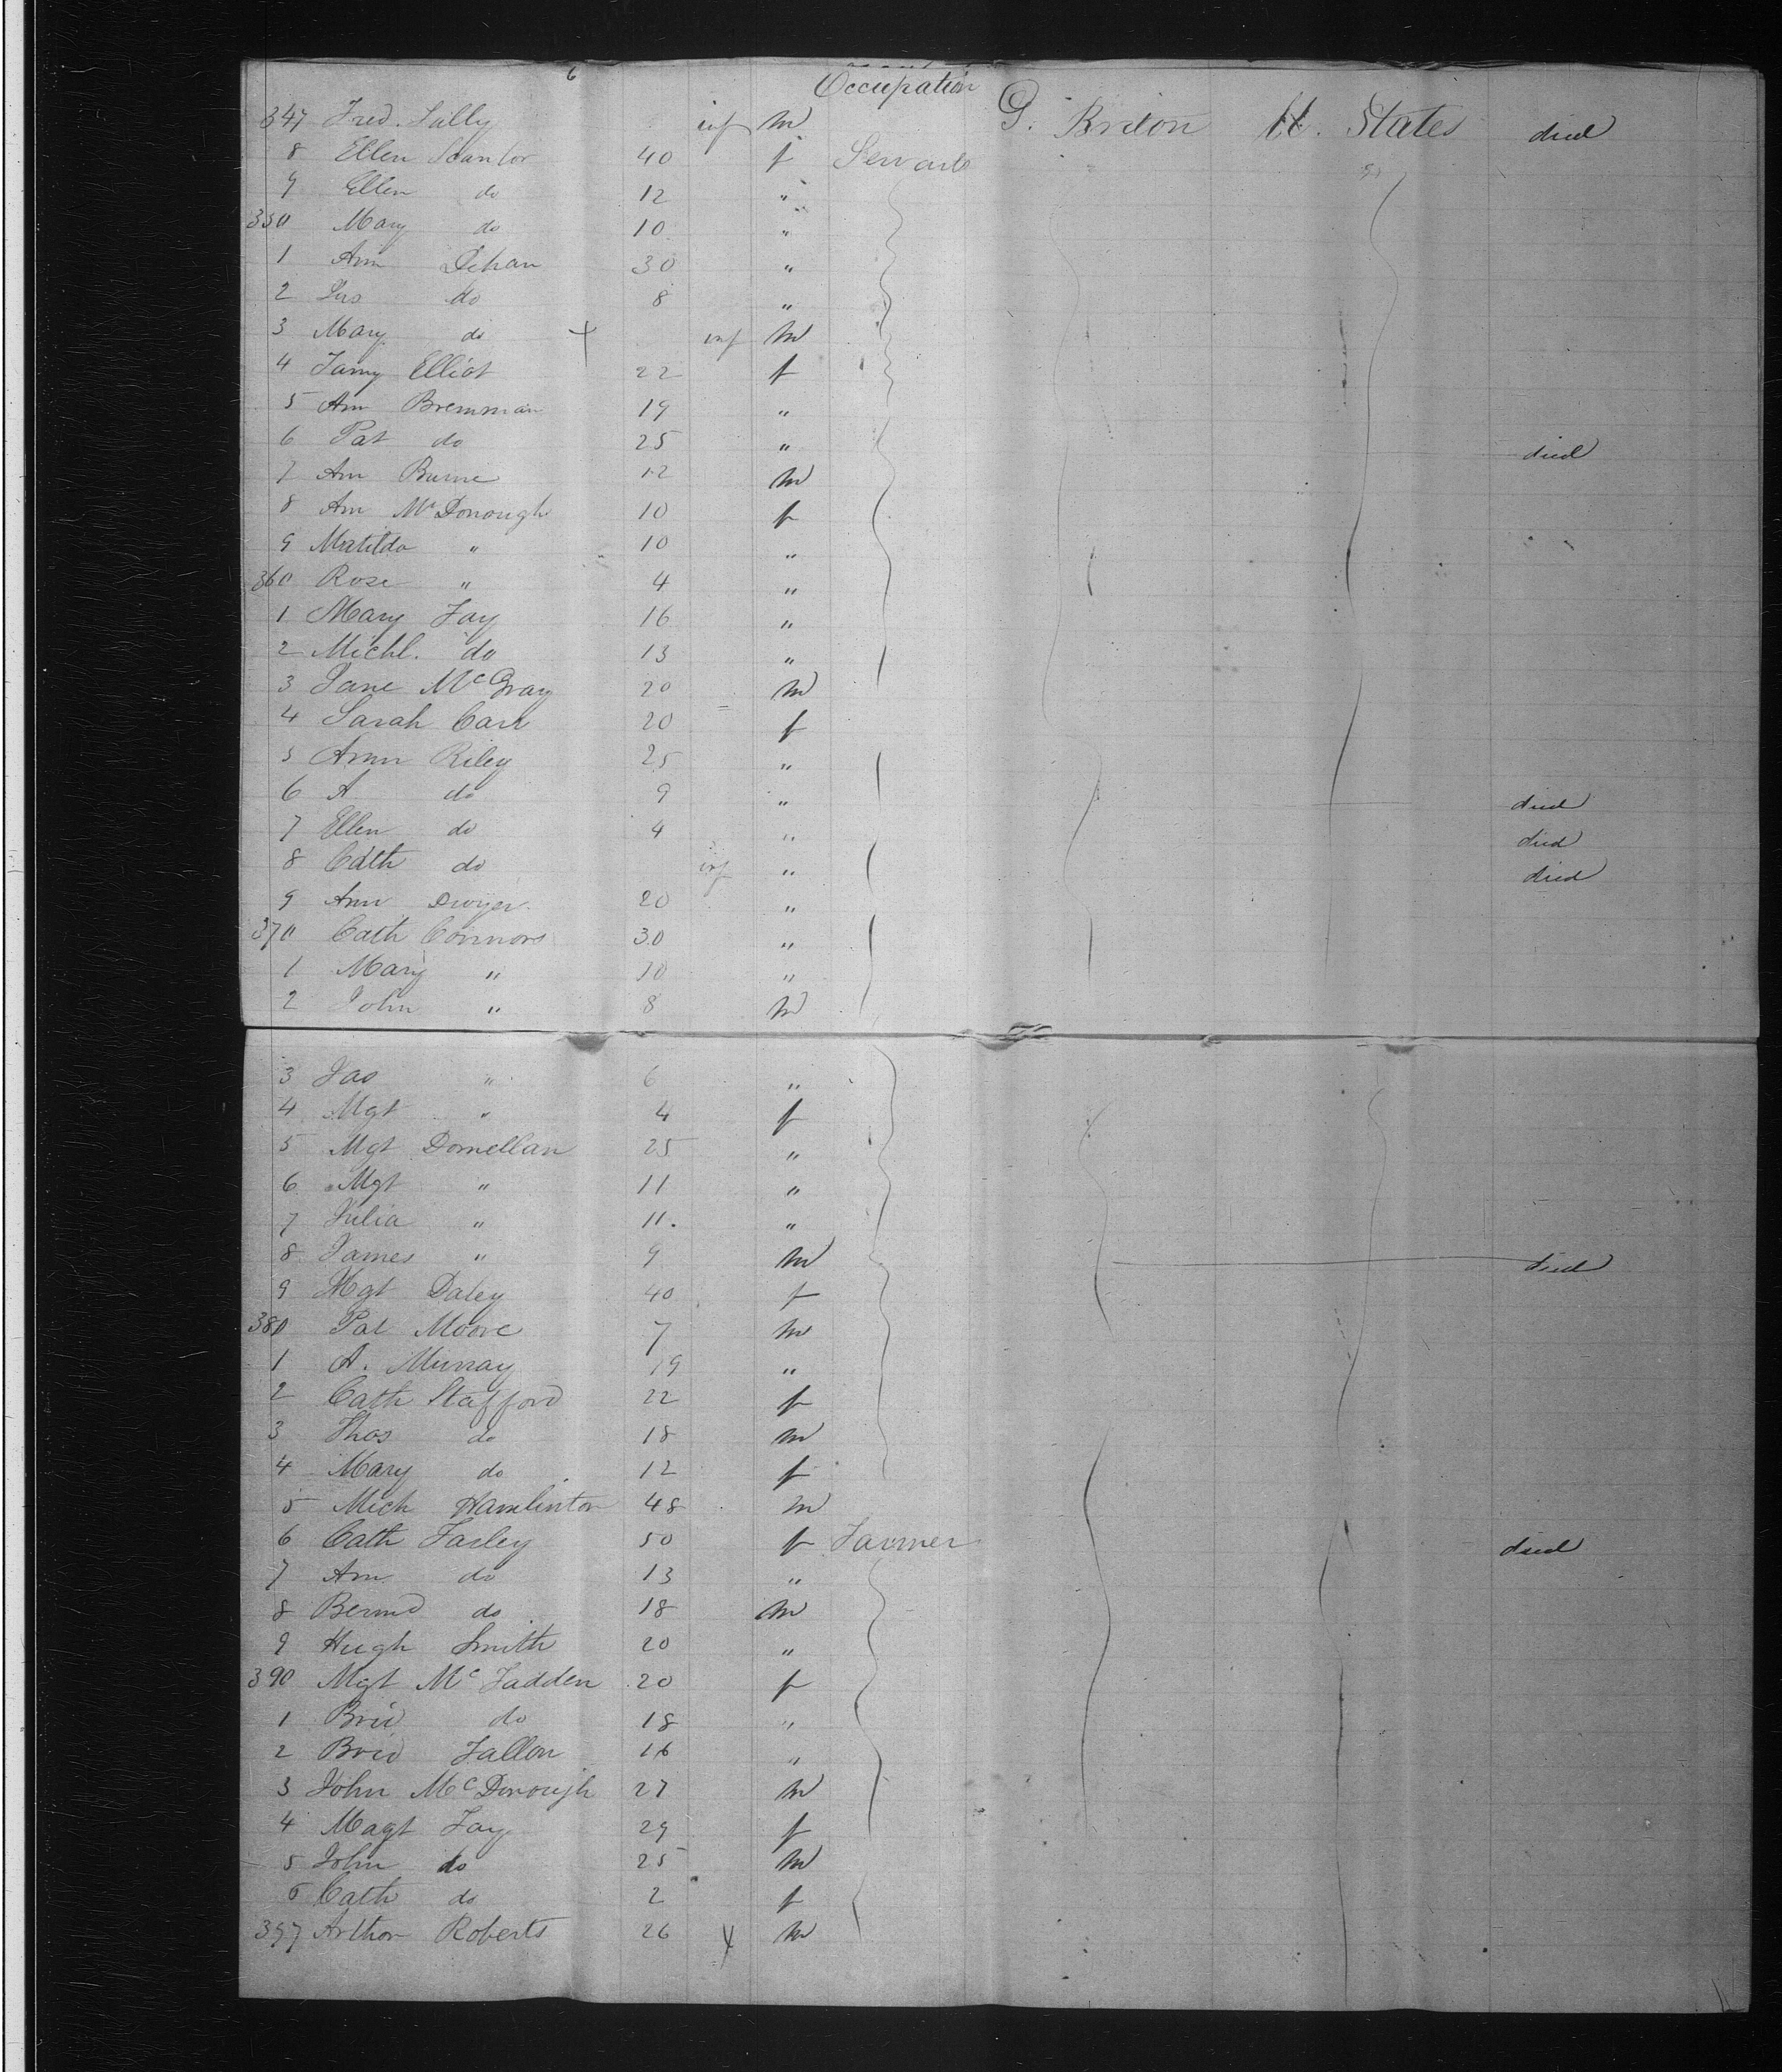 6
Occupation
347 Fred. Lally inf m G. Briton U. States died
8 Ellen Scanlor 40 f Servants
9 Ellen do 12 "
350 Mary do 10 "
1 Ann Dehan 30 "
2 Jas do 8 "
3 Mary do inf m
4 Fanny Elliot 22 f
5 Ann Bremman 19 "
6 Pat do 25 " died
7 Am Burne 12 m
8 Am McDonough 10 f
9 Matilda " 10 "
360 Rose " 4 "
1 Mary Fay 16 "
2 Michl. do 13 "
3 Jane McGray 20 m
4 Sarah Carr 20 f
5 Ann Riley 25 "
6 A do 9 " died
7 Ellen do 4 " died
8 Cath do inf " died
9 Ann Dwyer 20 "
370 Cath Connors 30 "
1 Mary " 10 "
2 John " 8 m
3 Jas " 6 "
4 Mgt " 4 f
5 Mgt Donnellan 25 "
6 Mgt " 11 "
7 Julia " 11. "
8 James " 9 m died
9 Mgt Daley 40 f
380 Pat Moore 7 m
1 A. Murray 19 "
2 Cath Stafford 22 f
3 Thos do 18 m
4 Mary do 12 f
5 Mich Hamlinton 48 m
6 Cath Farley 50 f Farmer died
7 Am do 13 "
8 Bernd do 18 m
9 Hugh Smith 20 "
390 Mgt McFadden 20 f
1 Brid do 18 "
2 Brid Fallon 16 "
3 John McDonough 27 m
4 Magt Fay 29 f
5 John do 25 m
6 Cath do 2 f
397 Arthor Roberts 26 m